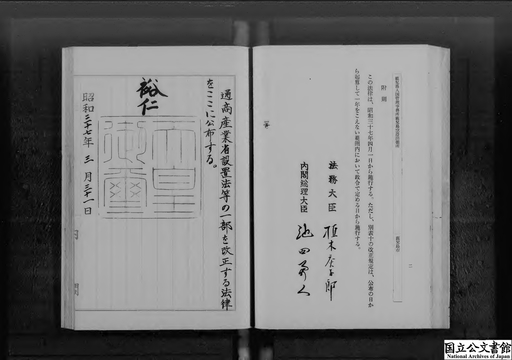 附則
この法律は、昭和三十七年四月一日から施行する。ただし、別表十の改正規定は、公布の日か
ら起算して一年をこえない範囲内において政令で定める日から施行する。
法務大臣 植木庚子郎
内閣総理大臣 池田勇人
通商産業省設置法等の一部を改正する法律
をここに公布する。
裕仁
天皇御璽
昭和三十七年三月三十一日
国立公文書館
National Archives of Japan